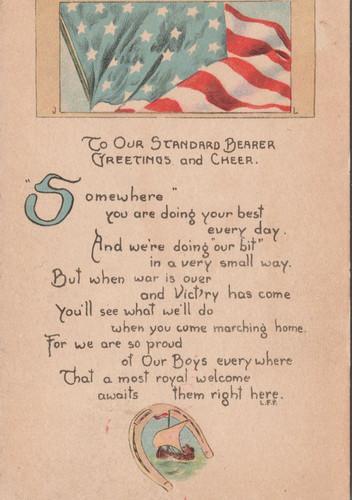 J L
To Our Standard Bearer
Greetings and Cheer.
"Somewhere"
you are doing your best
every day.
And we're doing "our bit"
in a very small way.
But when war is over
and Vict'ry has come
You'll see what we'll do
when you come marching home.
For we are so proud
of Our Boys everywhere
That a most royal welcome
awaits them right here.
L.F.F.